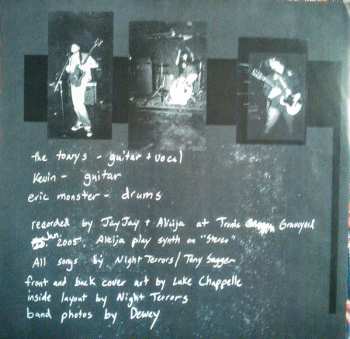 the tonys - guitar + vocal
Kevin - guitar
eric monster - drums
recorded by Jay Jay + Alvija at Graveyard
Jan 2005. Alvija play synth on "Stereo"
All songs by Night Terrors / Tony Sagger
front and back cover art by Luke Chappelle
inside layout by Night Terrors
band photos by Dewey